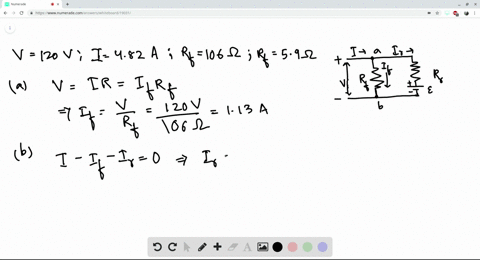 Numerade
https://www.numerade.com
V = 120 V ; I = 4.82 A ; R_f = 106 Ω ; R_f = 5.9 Ω
(a) V = IR = I_f R_f
⇒ I_f = V/R_f = 120 V/106 Ω = 1.13 A
(b) I - I_f - I_r = 0 ⇒ I_r -
I → a I_r →
+
V R_f I_f R_r
+ - I ε
- b